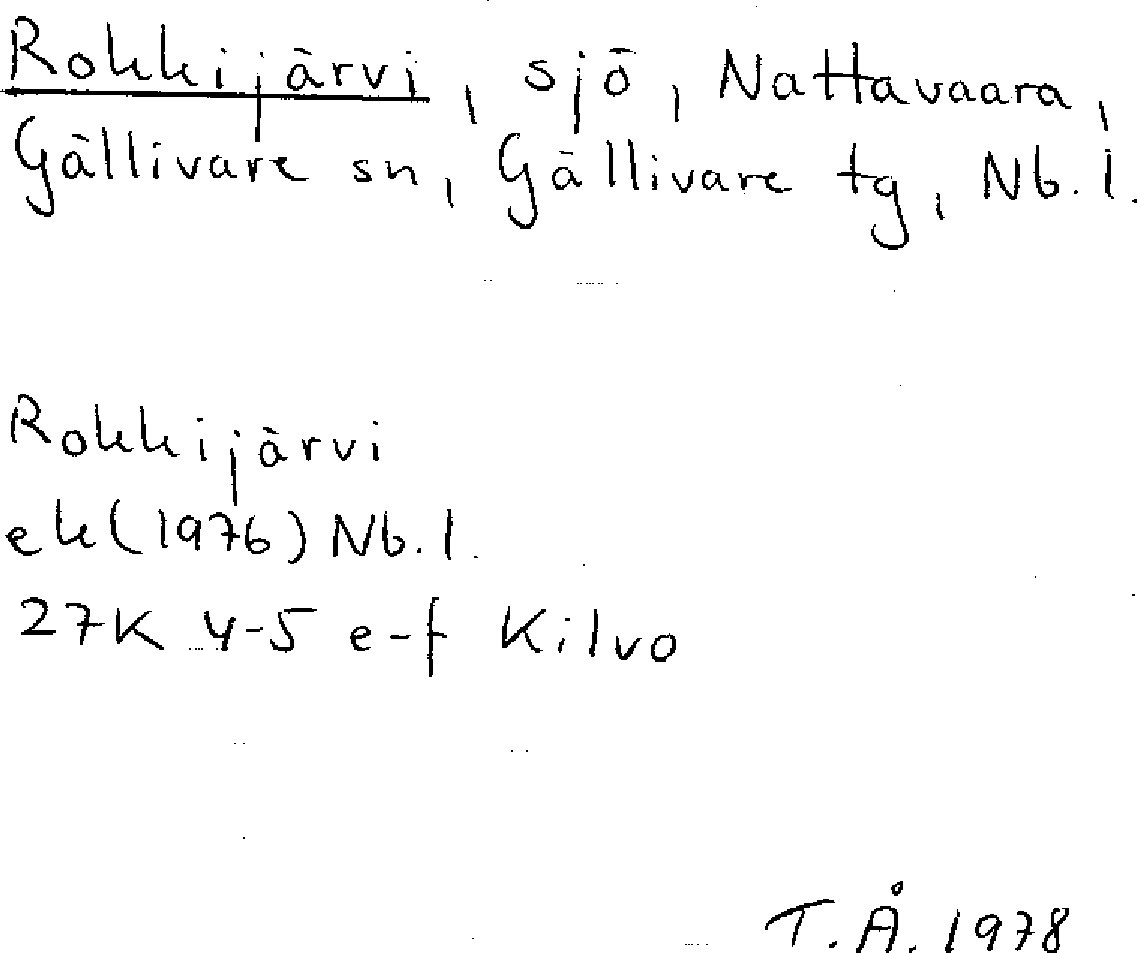 Rokkijärvi, sjö, Nattavaara,
Gällivare sn, Gällivare tg, Nb. l.
Rokkijärvi
ek (1976) Nb. l.
27K 4-5 e-f Kilvo
T.Å. 1978